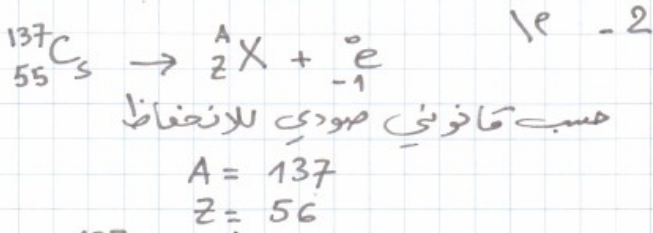 2 - 1e
¹³⁷₅₅Cs → ᴬ_Z X + ⁰₋₁e
حسب قانوني صودي للانحفاظ
A = 137
Z = 56